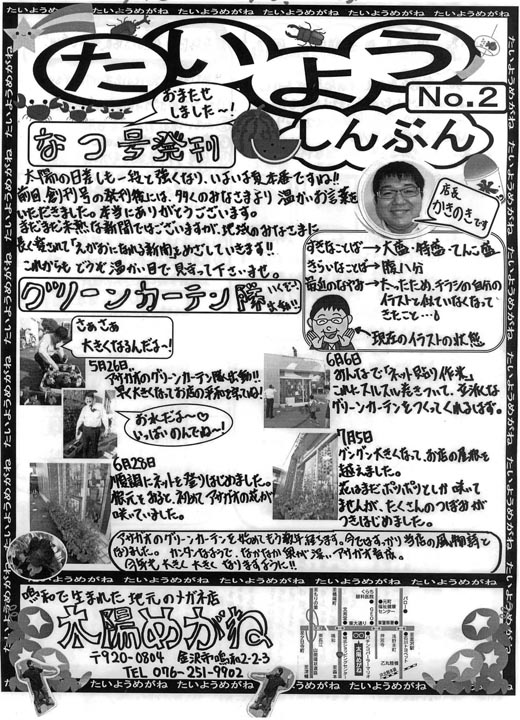 たいよう
No.2
しんぶん
おまたせ
しました～!
なつ号発刊
太陽の日差しも一段と強くなり、いよいよ夏本番ですね!!
前回、創刊号の発刊後には、多くのみなさまより 温かいお言葉を
いただきました。本当にありがとうございます。
まだまだ未熟な新聞ではございますが、地域のみなさまに
長く愛されて「えがおになれる新聞」をめざしていきます!!
これからも どうぞ温かい目で見守って下さいませ。
店長
かきのきです
すきなことば→大盛・特盛・てんこ盛
きらいなことば→腹八分
最近のなやみ→太ったため、チラシの自分の
イラストと似ていなくなって
きたこと…
現在のイラストの状態
グリーンカーテン隊
さぁさぁ
大きくなるんだよ～!
5月26日
アサガオのグリーンカーテン隊出動!!
早く大きくなってお店の平和を守ってね!
お水だよ～♡
いっぱいのんでね～!
6月6日
みんなで「ネット貼り作業」
これにスルスル巻きついて、立派な
グリーンカーテンをつくってくれるはず。
6月28日
順調にネットを登りはじめました。
根元をみると、初めてアサガオの花が
咲いていました。
7月5日
グングン大きくなって、お店の屋根を
越えました。
花はまだポツポツとしか咲いて
ませんが、たくさんのつぼみが
つきはじめました。
アサガオのグリーンカーテンを始めてもう数年経ちます。今ではすっかり当店の風物詩と
なりました。カンタンなようで、なかなか奥が深いアサガオ育て。
今年も大きく大きくなりますように!!
鳴和で生まれた 地元のメガネ店
太陽めがね
〒920-0804 金沢市鳴和2-2-3
TEL 076-251-9902
たいようめがね たいようめがね たいようめがね たいようめがね